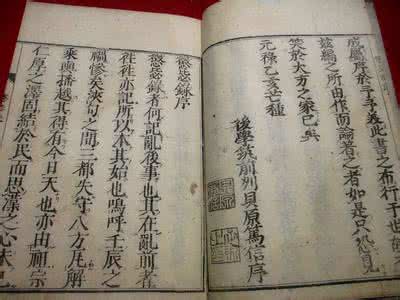 屬序於予々義此書之布行于世也
茲編之所由作而論著之者如是只恐見
笑於大方之家已矣
元祿乙亥芒種
後學筑前州貝原篤信序
懲毖錄序
懲毖錄者何記亂後事也其在亂前者
徃徃亦記所以本其始也嗚呼壬辰之
禍慘矣浹旬之間三都失守八方瓦解
乘輿播越其得有今日天也亦由祖宗
仁厚之澤固結於民而思漢之心未已